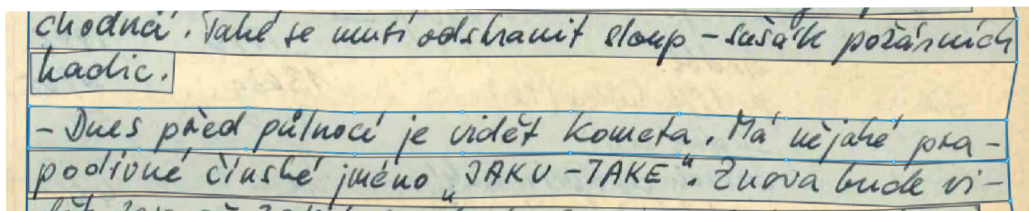 chodná. Také se musí odstranit sloup – sušák požárních
hadic.
– Dnes před půlnocí je vidět kometa. Má nějaké pra-
podivné čínské jméno „JAKU – TAKE“. Znova bude vi-